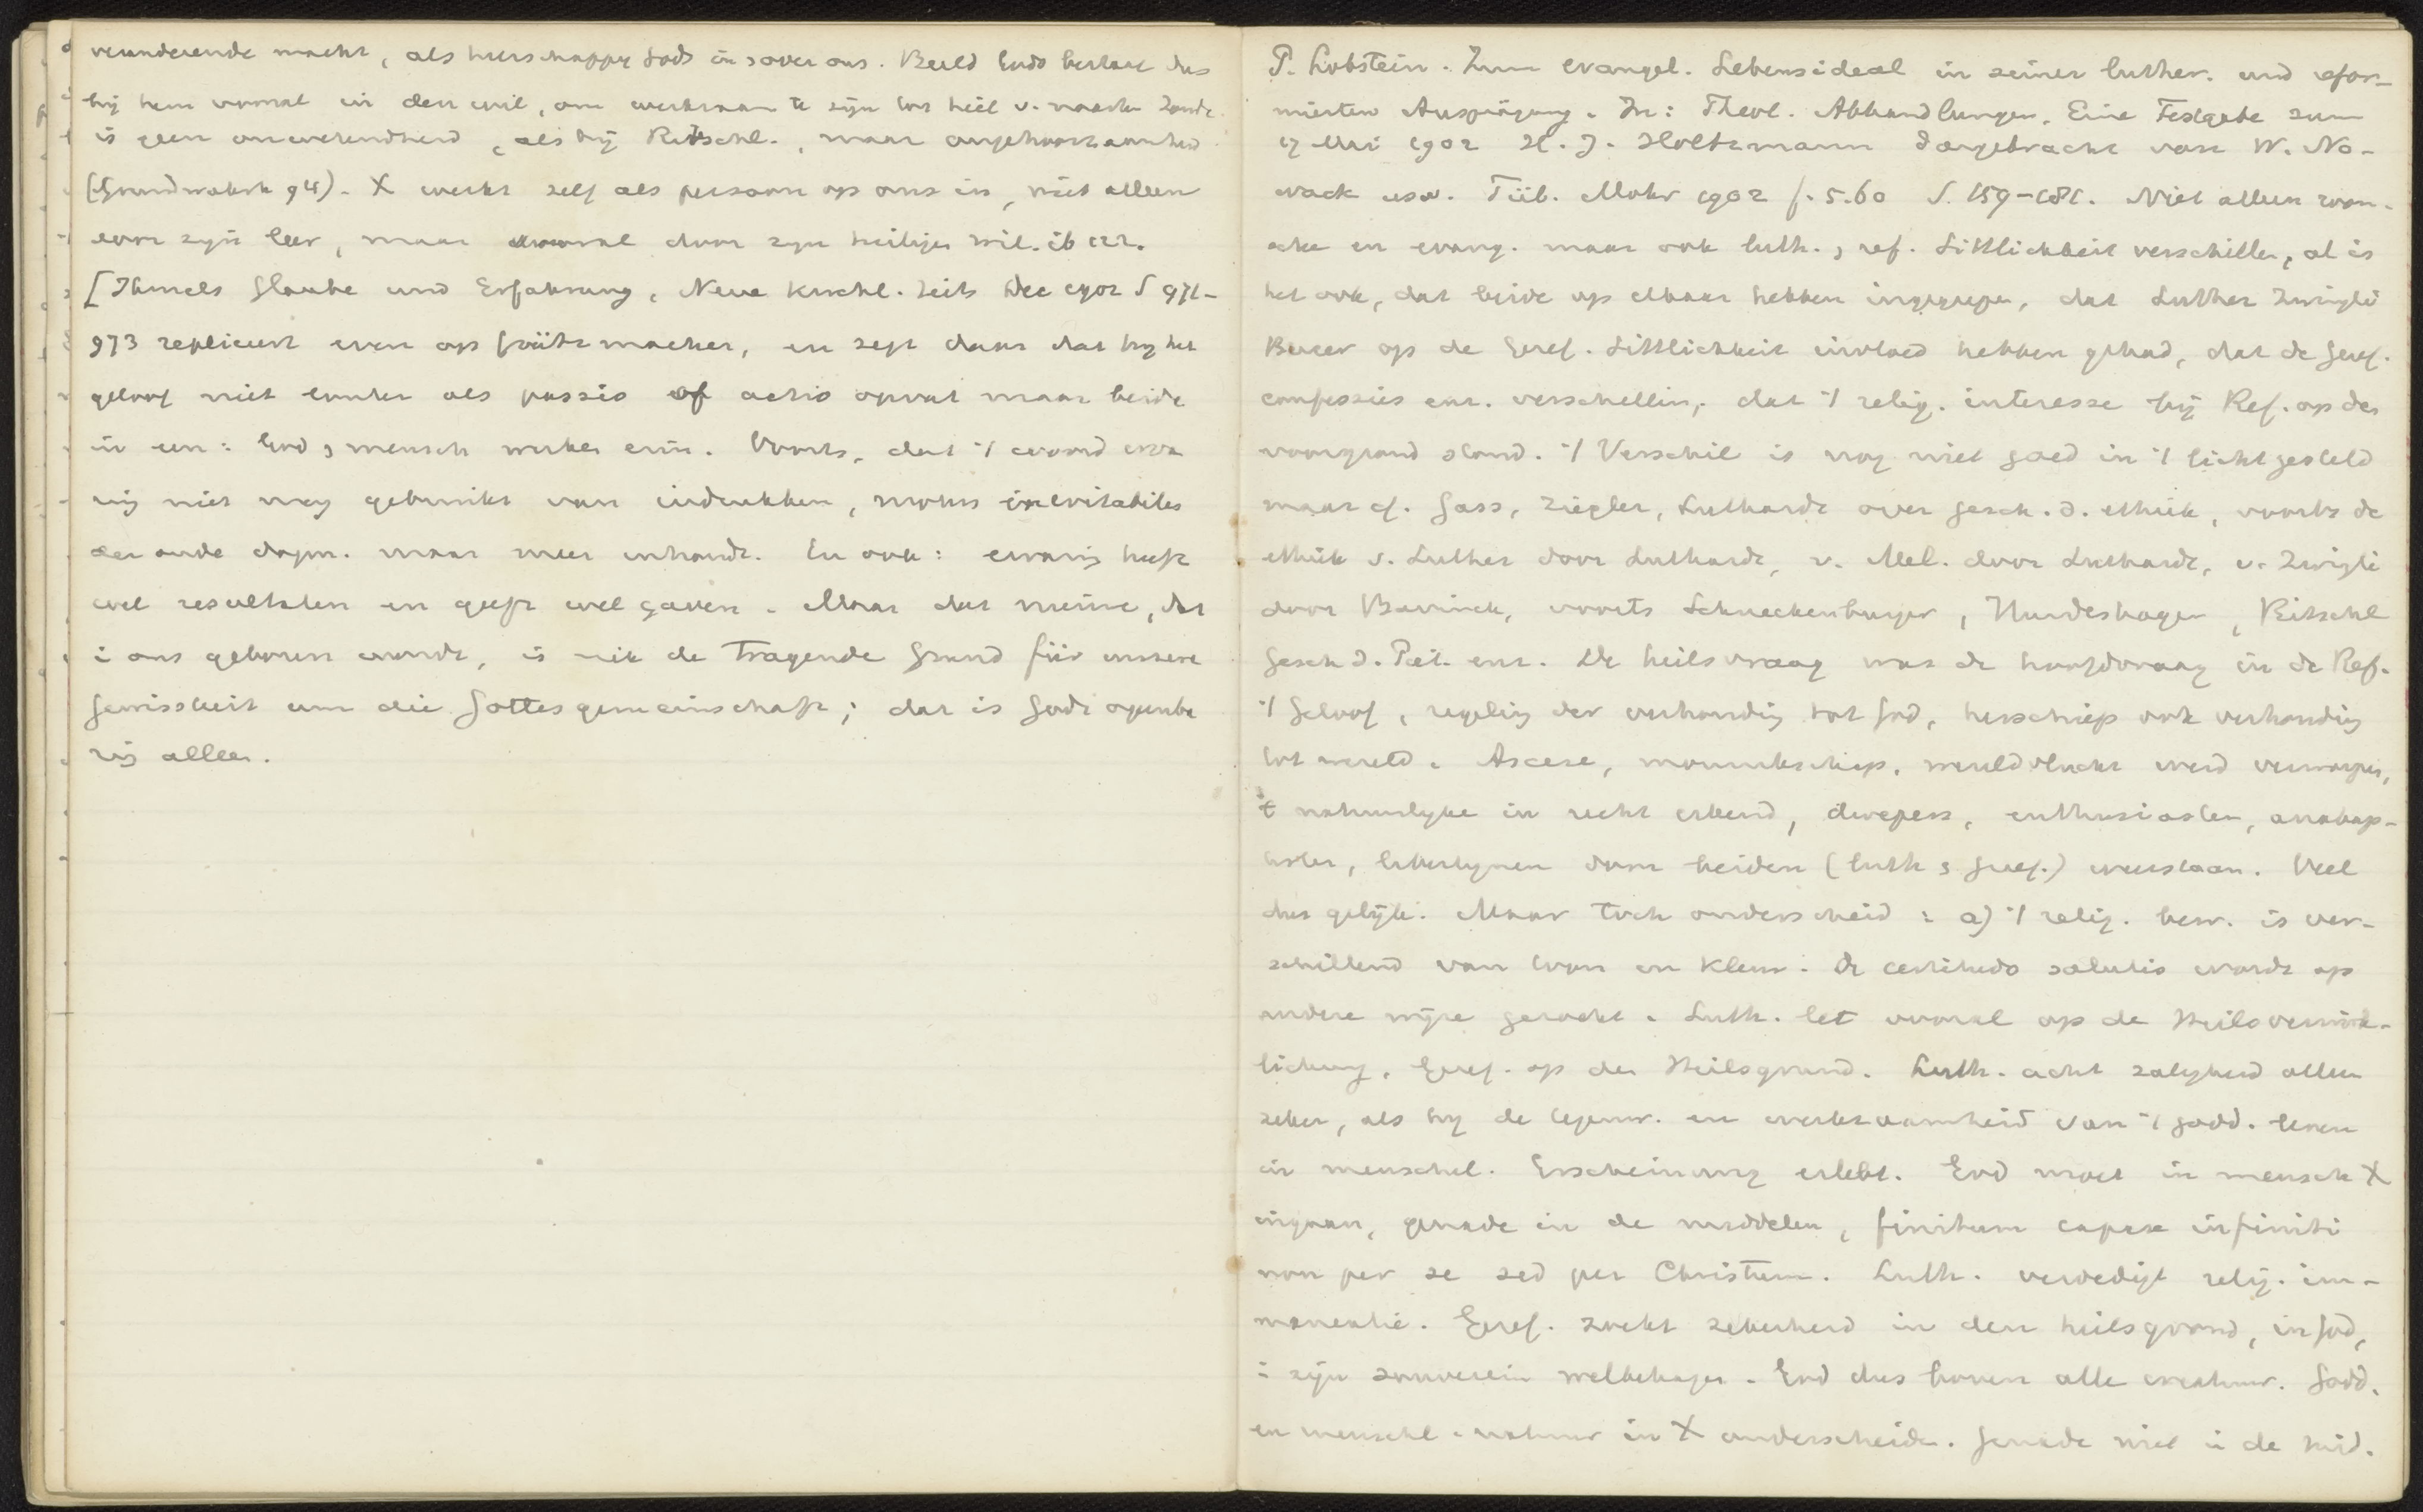 veranderende macht, als heerschappy Gods in & over ons. Beeld Gods bestaat dus
by hem vooral in den wil, om werkzaam te zijn tot heil v. naaste. Zonde
is geen onwetendheid, als bij Ritschl., maar ongehoorzaamheid
(Grundwahrh 94). X werkt zelf als persoon op ons in, niet alleen
door zijn leer, maar vooral door zyn heiligen wil. ib 122.
[Ihmels Glaube und Erfahrung, Neue Kirchl. Zeits Dec 1902 S 971-
973 repliceert even op Grützmacher, en zegt daar dat hy het
geloof niet louter als passio of actio opvat maar beide
in een: God & mensch werken erin. Voorts, dat 't woord erva
ring niet mag gebruikt van indrukken, motus inevitabiles
der oude dogm. maar meer inhoudt. En ook: ervaring heeft
wel resultaten en geeft wel gaven. Maar dat nieuwe, dat
i ons geboren wordt, is niet de tragende Grund für unsere
Gewissheit um die Gottesgemeinschaft; dat is Gods openba
ring alleen.
P. Lobstein. Zum evangel. Lebensideal in seiner luther. und refor-
mierten Ausprägung. In: Theol. Abhandlungen. Eine Festgabe zum
17 Mai 1902 H. J. Holtzmann dargebracht von W. No-
wack usw. Tüb. Mohr 1902 f. 5.60 S. 159-181. Niet alleen room-
sche en evang. maar ook luth. & ref. Sittlichkeit verschillen, al is
het ook, dat beide op elkaar hebben ingegrepen, dat Luther Zwingli
Bucer op de Geref. Sittlichkeit invloed hebben gehad, dat de Geref.
confessies enz. verschillen, dat 't relig. interesse bij Ref. op den
voorgrond stond. 't Verschil is nog niet goed in 't licht gesteld
maar cf. Gass, Ziegler, Luthardt over gesch. d. ethiek, voorts de
ethiek v. Luther door Luthardt, v. Mel. door Luthardt, v. Zwingli
door Bavinck, voorts Schneckenburger, Hundeshagen, Ritschl
Gesch d. Piet. enz. De heilsvraag was de hoofdvraag in de Ref.
't Geloof, regeling der verhouding tot God, herschiep ook verhouding
tot wereld. Ascese, monnikschap, wereldvlucht werd verworpen,
't natuurlyke in recht erkend, dwepers, enthusiasten, anabap-
tisten, libertynen door beiden (luth & Geref.) weerstaan. Veel
dus gelijk. Maar toch onderscheid: a) 't relig. bew. is ver-
schillend van toon en kleur. De certitudo salutis wordt op
andere wijze gezocht. Luth. let vooral op de Heilsverwirk-
lichung, Geref. op den Heilsgrund. Luth. acht zaligheid alleen
zeker, als hy de tegenw. en werkzaamheid van 't godd. leven
in menschel. Erscheinung erlebt. God moet in mensch X
ingaan, genade in de middelen, finitum capax infiniti
non per se sed per Christum. Luth. verdedigt relig. im-
manentie. Geref. zoekt zekerheid in den heilsgrond, in God,
i zijn souverein welbehagen. God dus boven alle creatuur. Godd.
en menschl. natuur in X onderscheiden. Genade niet i de mid.